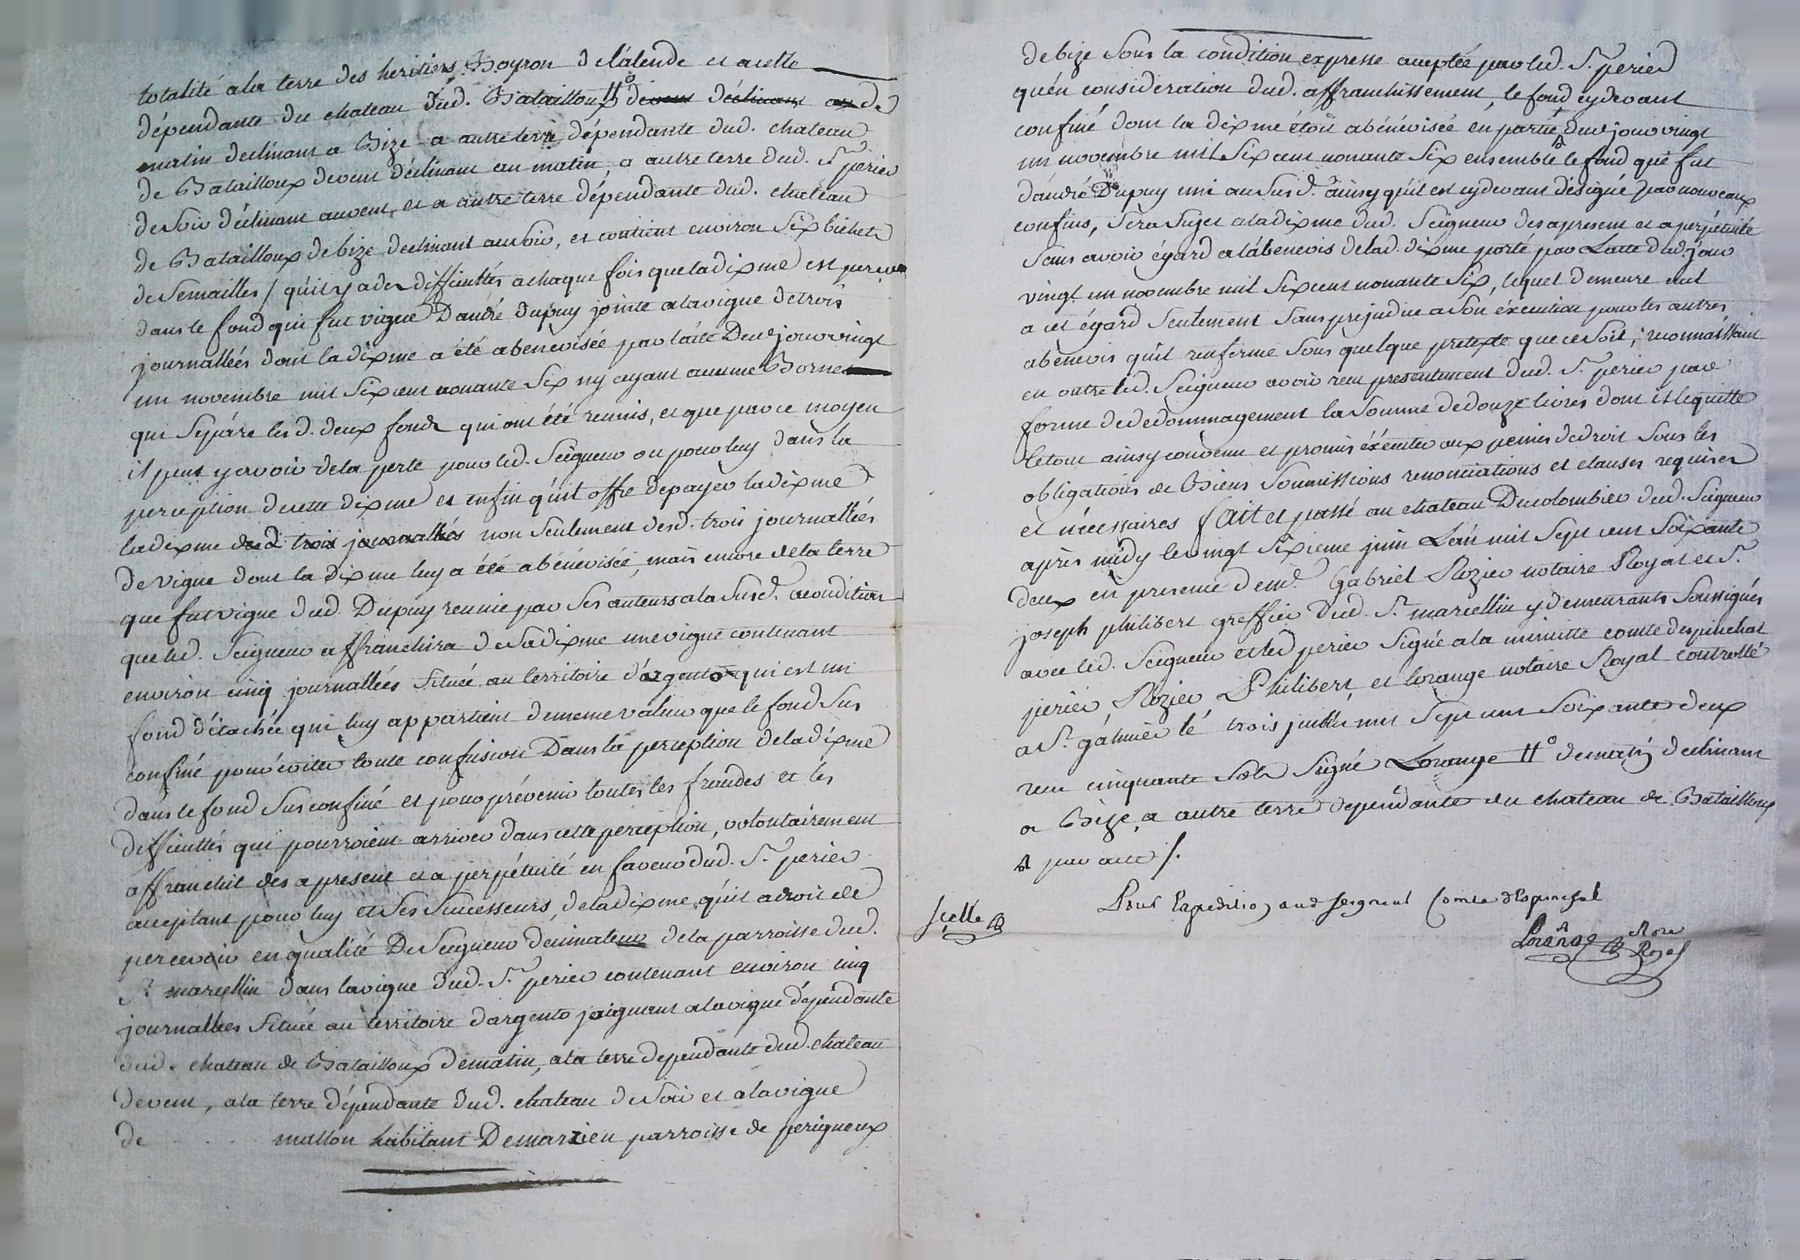 totalité a la terre des heritiers Boyron de Lalende et a celle
dépendante du chateau dud. Batailloux # de vent déclinant au de
matin declinant a Bize a autre terre dépendante dud. chateau
de Batailloux devent déclinant au matin a autre terre dud. Sr. perier
de soir déclinant au vent, et a autre terre dépendante dud. chateau
de Batailloux de bize declinant au soir, et contient environ six bichets
de semailles / qu'il y a des difficultés a chaque fois que la dixme est perçue
dans le fond qui fut vigne D'andré dupuy jointe a la vigne de trois
journallées dont la dixme a été abenevisée par l'acte Dud. jour vingt
un novembre mil six cent nonante six ny ayant aucune Borne
qui sépare lesd. deux fonds qui ont été reunis, et que par ce moyen
il peut y avoir de la perte pour led. Seigneur ou pour luy dans la
perception de cette dixme et enfin qu'il offre de payer la dixme
la dixme desd. trois journallés non seulement desd. trois journallées
de vigne dont la dixme luy a été abénévisée, mais encore de la terre
que fut vigne dud. Dupuy reunie par ses auteurs a la susd. a condition
que led. Seigneur affranchira de sa dixme une vigne contenant
environ cinq journallées située au territoire d'argento qui est un
fond détachée qui luy appartient de meme valeur que le fond sus
confiné pour éviter toute confusion Dans la perception de la dixme
dans le fond sus confiné et pour prévenir toutes les fraudes et les
difficultés qui pourroient arriver dans cette perception, volontairement
affranchit des a present et a perpétuité en faveur dud. Sr. perier
acceptant pour luy et ses successeurs, de la dixme qu'il a droit de
percevoir en qualité De Seigneur decimateur de la parroisse dud.
St. marcellin dans la vigne dud. Sr. perier contenant environ cinq
journallées située au territoire d'argento joignant a la vigne dépendante
dud. chateau de Batailloux de matin, a la terre dependante dud. chateau
de vent, a la terre dépendante dud. chateau de soir et a la vigne
de ........ mallon habitant De marzieu parroisse de perigneux
de bize sous la condition expresse acceptée par led. Sr. perier
qu'en consideration dud. affranchissement, le fond cy devant
confiné dont la dixme étoit abénévisée en partie dud. jour vingt
un novembre mil six cent nonante six ensemble le fond que fut
d'andré Dupuy uni au susd. ainsy qu'il est cy devant désigné par nouveaux
confins, sera sujet a la dixme dud. Seigneur des apresent et a perpétuité
sans avoir égard a l'abenevis de lad. dixme porté par Lacte dud. jour
vingt un novembre mil six cent nonante six, lequel demeure nul
a cet égard seulement sans prejudice a son éxécution pour les autres
abénevis qu'il renferme sous quelque pretexte que ce soit, reconnaissant
en outre led. Seigneur avoir reçu presentement dud. Sr. perier par
forme de dedommagement la somme de douze livres dont il le quitte
le tout ainsy convenu et promis éxécuter aux peines de droit sous les
obligations de Biens soumissions renonciations et clauses requises
et nécessaires fait et passé au chateau Du colombier dud. Seigneur
après midy le vingt sixieme juin L'an mil sept cent soixante
deux en presence de me. Gabriel Rozier notaire Royal et Sr.
joseph philibert greffier dud. St. marcellin y demeurants soussignés
avec led. Seigneur et led perier signé a la minutte comte despinchal
perier Rozier Philibert, et lorange notaire Royal controllé
a St. galmier le trois juillet mil sept cent soixante deux
reçu cinquante sols signé Lorange # de matin declinant
a Bize, a autre terre dependante du chateau de Batailloux
par acte /.
Scellé
Pour Expedition aud seigneur Comte d'Espinchal
Lorange nore
Royal